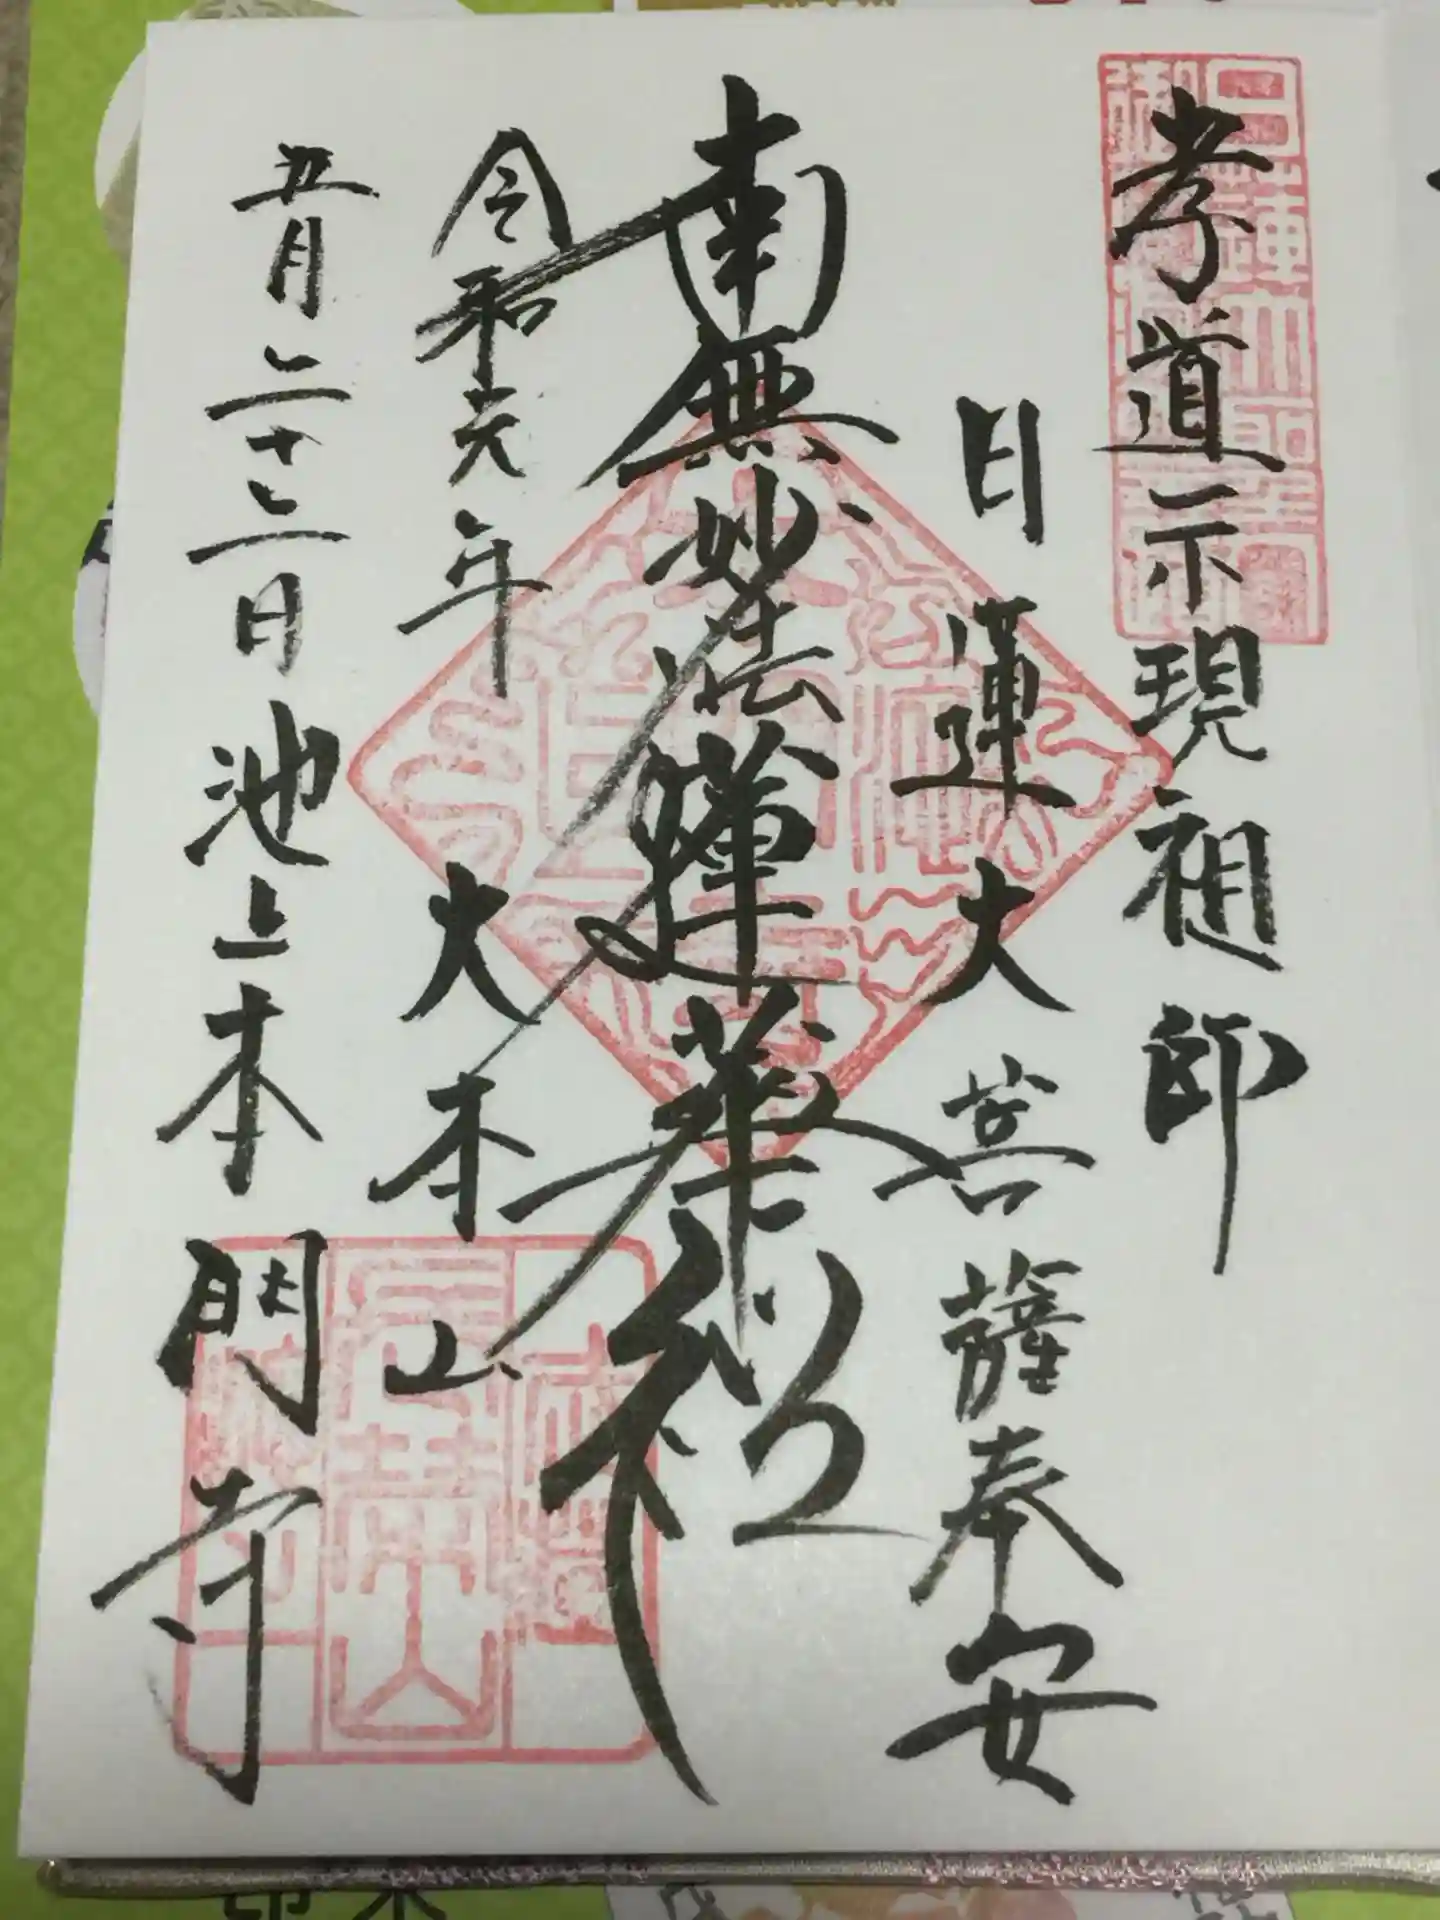 孝道示現祖師
日蓮大菩薩奉安
南無妙法蓮華経
令和元年
大本山
五月二十三日
池上本門寺